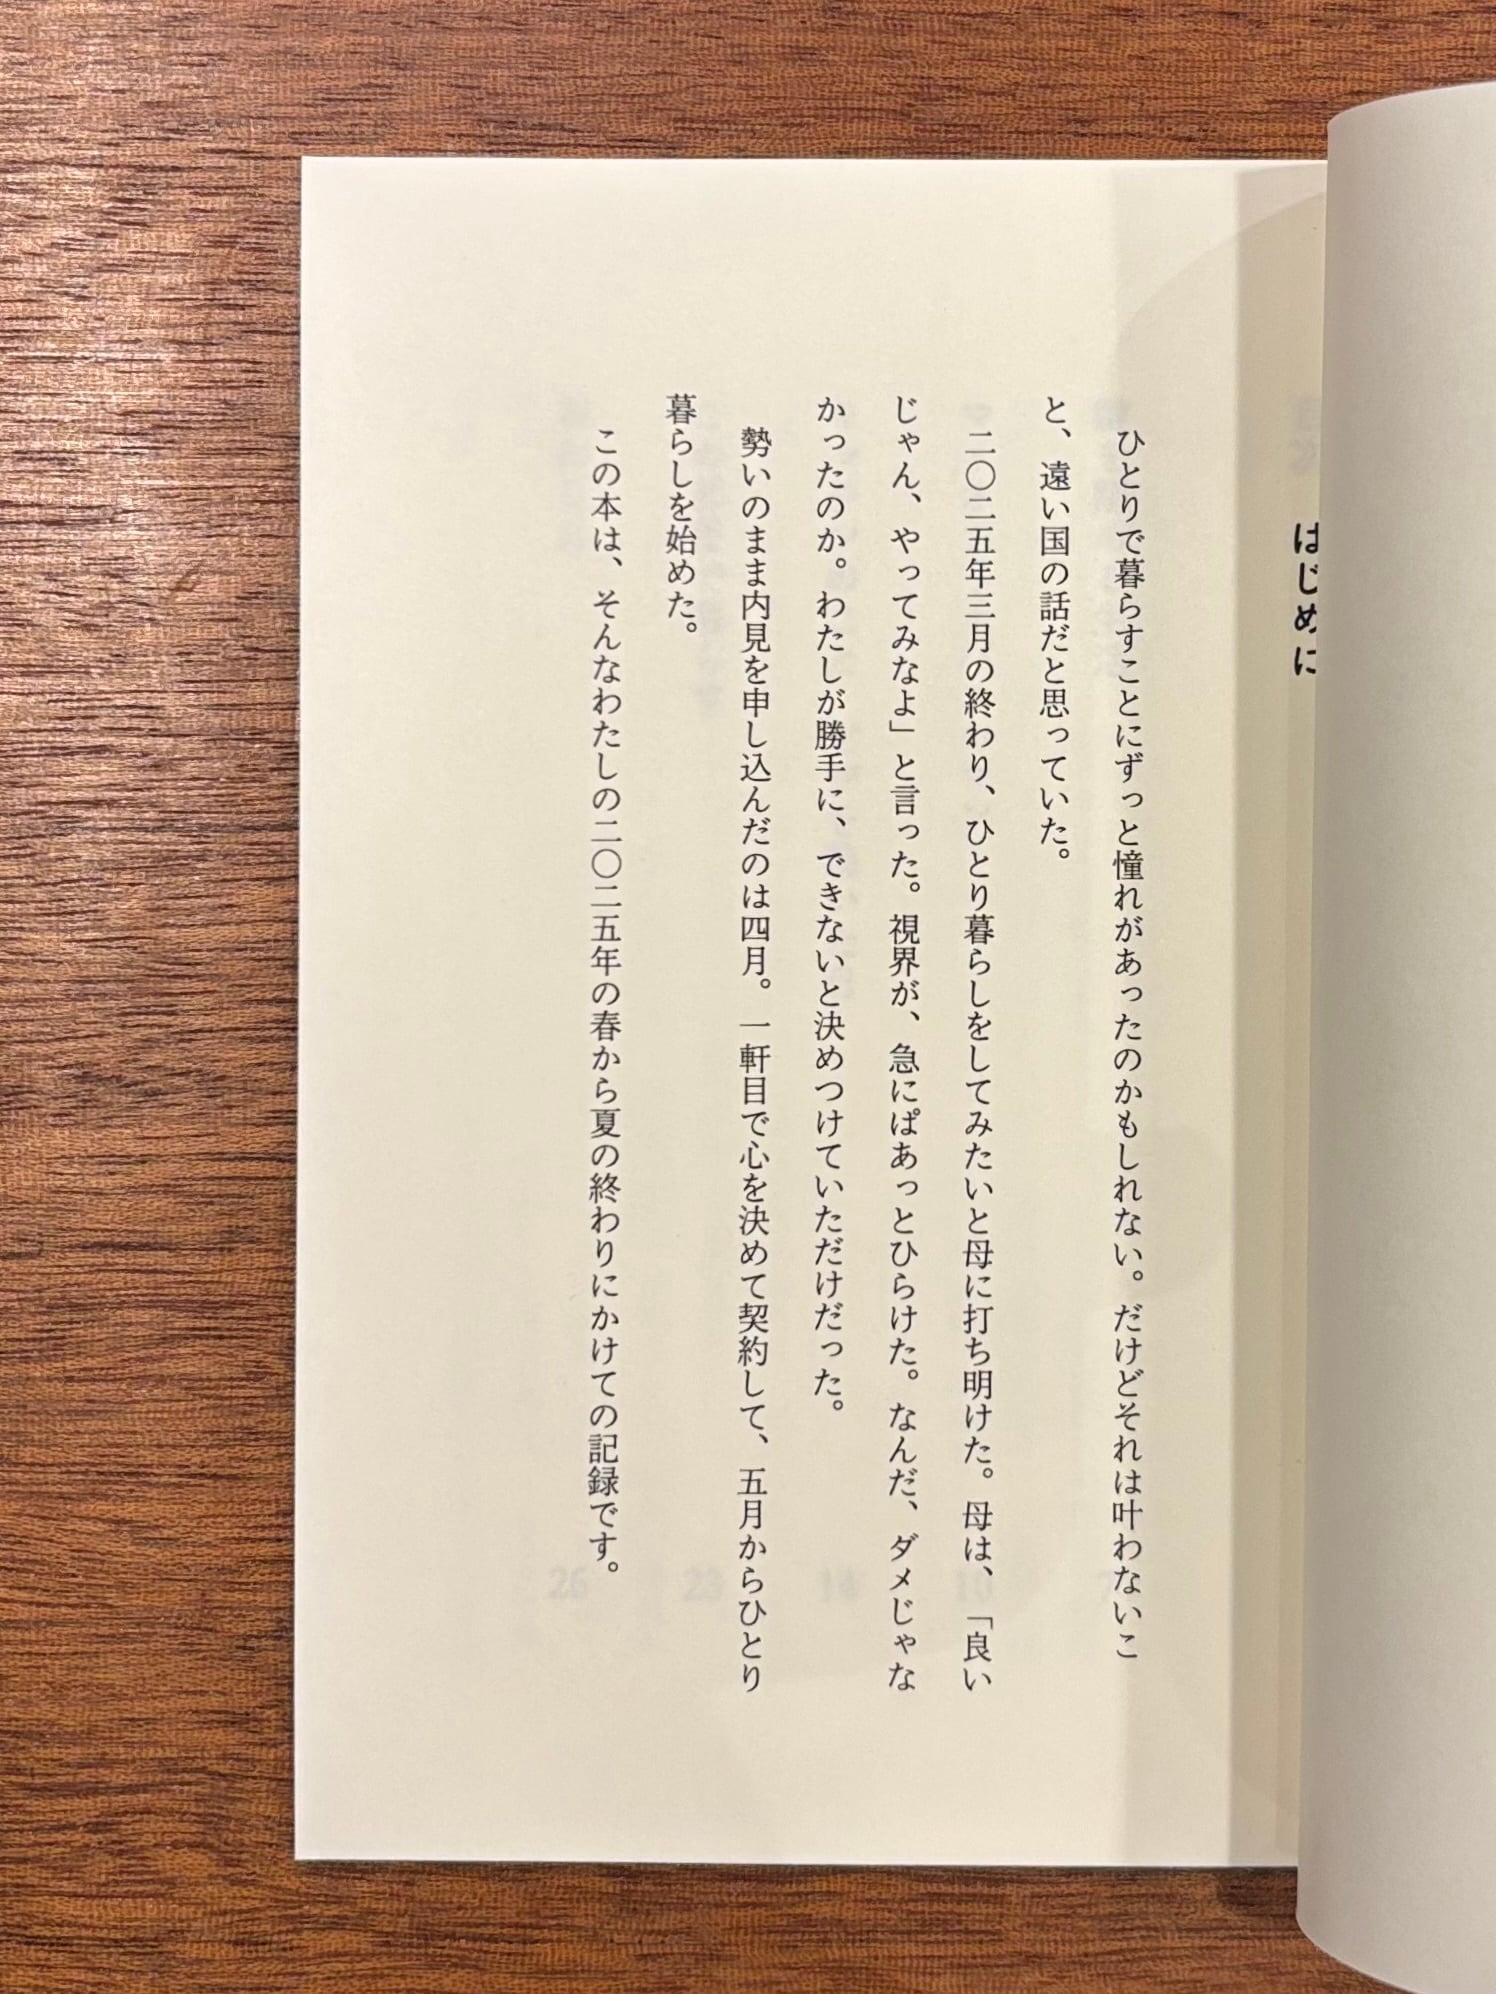 はじめに
ひとりで暮らすことにずっと憧れがあったのかもしれない。だけどそれは叶わないこ
と、遠い国の話だと思っていた。
二〇二五年三月の終わり、ひとり暮らしをしてみたいと母に打ち明けた。母は、「良い
じゃん、やってみなよ」と言った。視界が、急にぱあっとひらけた。なんだ、ダメじゃな
かったのか。わたしが勝手に、できないと決めつけていただけだった。
勢いのまま内見を申し込んだのは四月。一軒目で心を決めて契約して、五月からひとり
暮らしを始めた。
この本は、そんなわたしの二〇二五年の春から夏の終わりにかけての記録です。